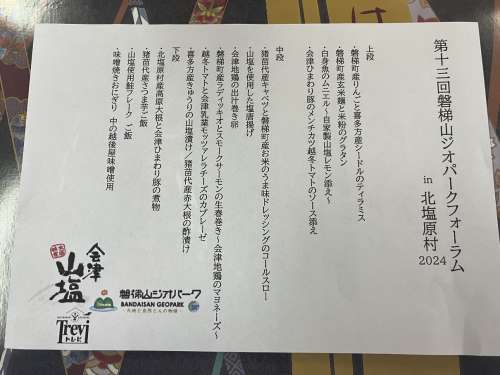 第十三回磐梯山ジオパークフォーラム
in 北塩原村
2024
上段
・磐梯町産りんごと喜多方産シードルのティラミス
・磐梯町産玄米麺と米粉のグラタン
・白身魚のムニエル～自家製山塩レモン添え～
・会津ひまわり豚のメンチカツ越冬トマトのソース添え
中段
・猪苗代産キャベツと磐梯町産お米のうま味ドレッシングのコールスロー
・山塩を使用した塩唐揚げ
・会津地鶏の出汁巻き卵
・磐梯町産ラディッツキオとスモークサーモンの生春巻き～会津地鶏のマヨネーズ～
・越冬トマトと会津乳業モッツァレラチーズのカプレーゼ
・喜多方産きゅうりの山塩漬け／猪苗代産赤大根の酢漬け
下段
・北塩原村産高原大根と会津ひまわり豚の煮物
猪苗代産さつま芋ご飯
・山塩使用鮭フレークご飯
味噌焼きおにぎり 中の越後屋味噌使用
会津
山塩
磐梯山ジオパーク
BANDAISAN GEOPARK
Trevi
トレビ